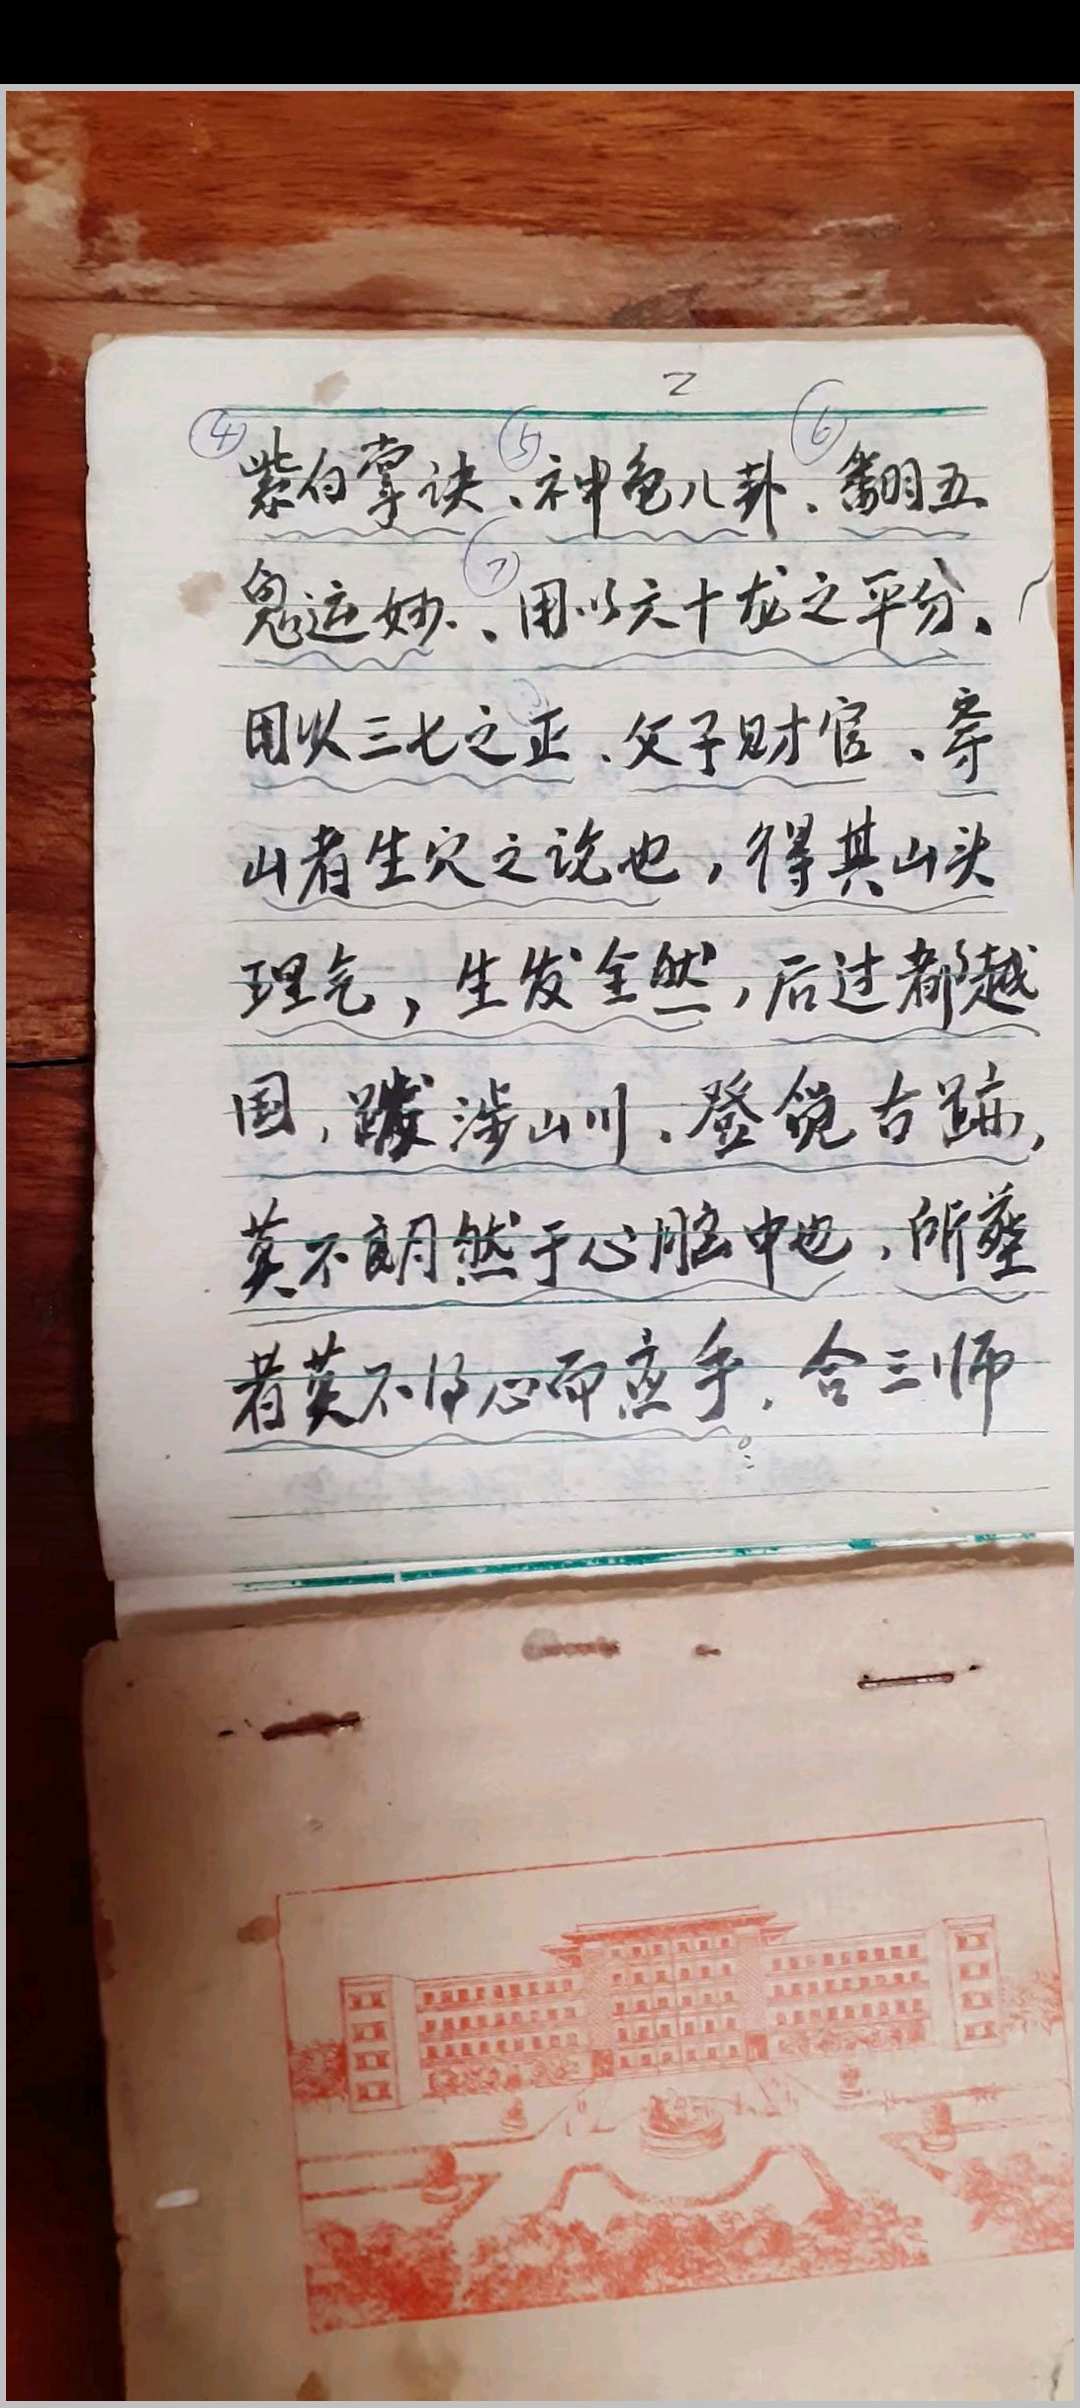 2
④紫白掌诀、⑤神龟八卦、⑥翻五
鬼运妙、⑦用以六十龙之平分、
用以三七之正、父子财官、寻
山者生穴之说也，得其山头
理气，生发全然，后过都越
国，跋涉山川、登览古迹，
莫不朗然于心脑中也，所葬
者莫不得心而应手，合三师